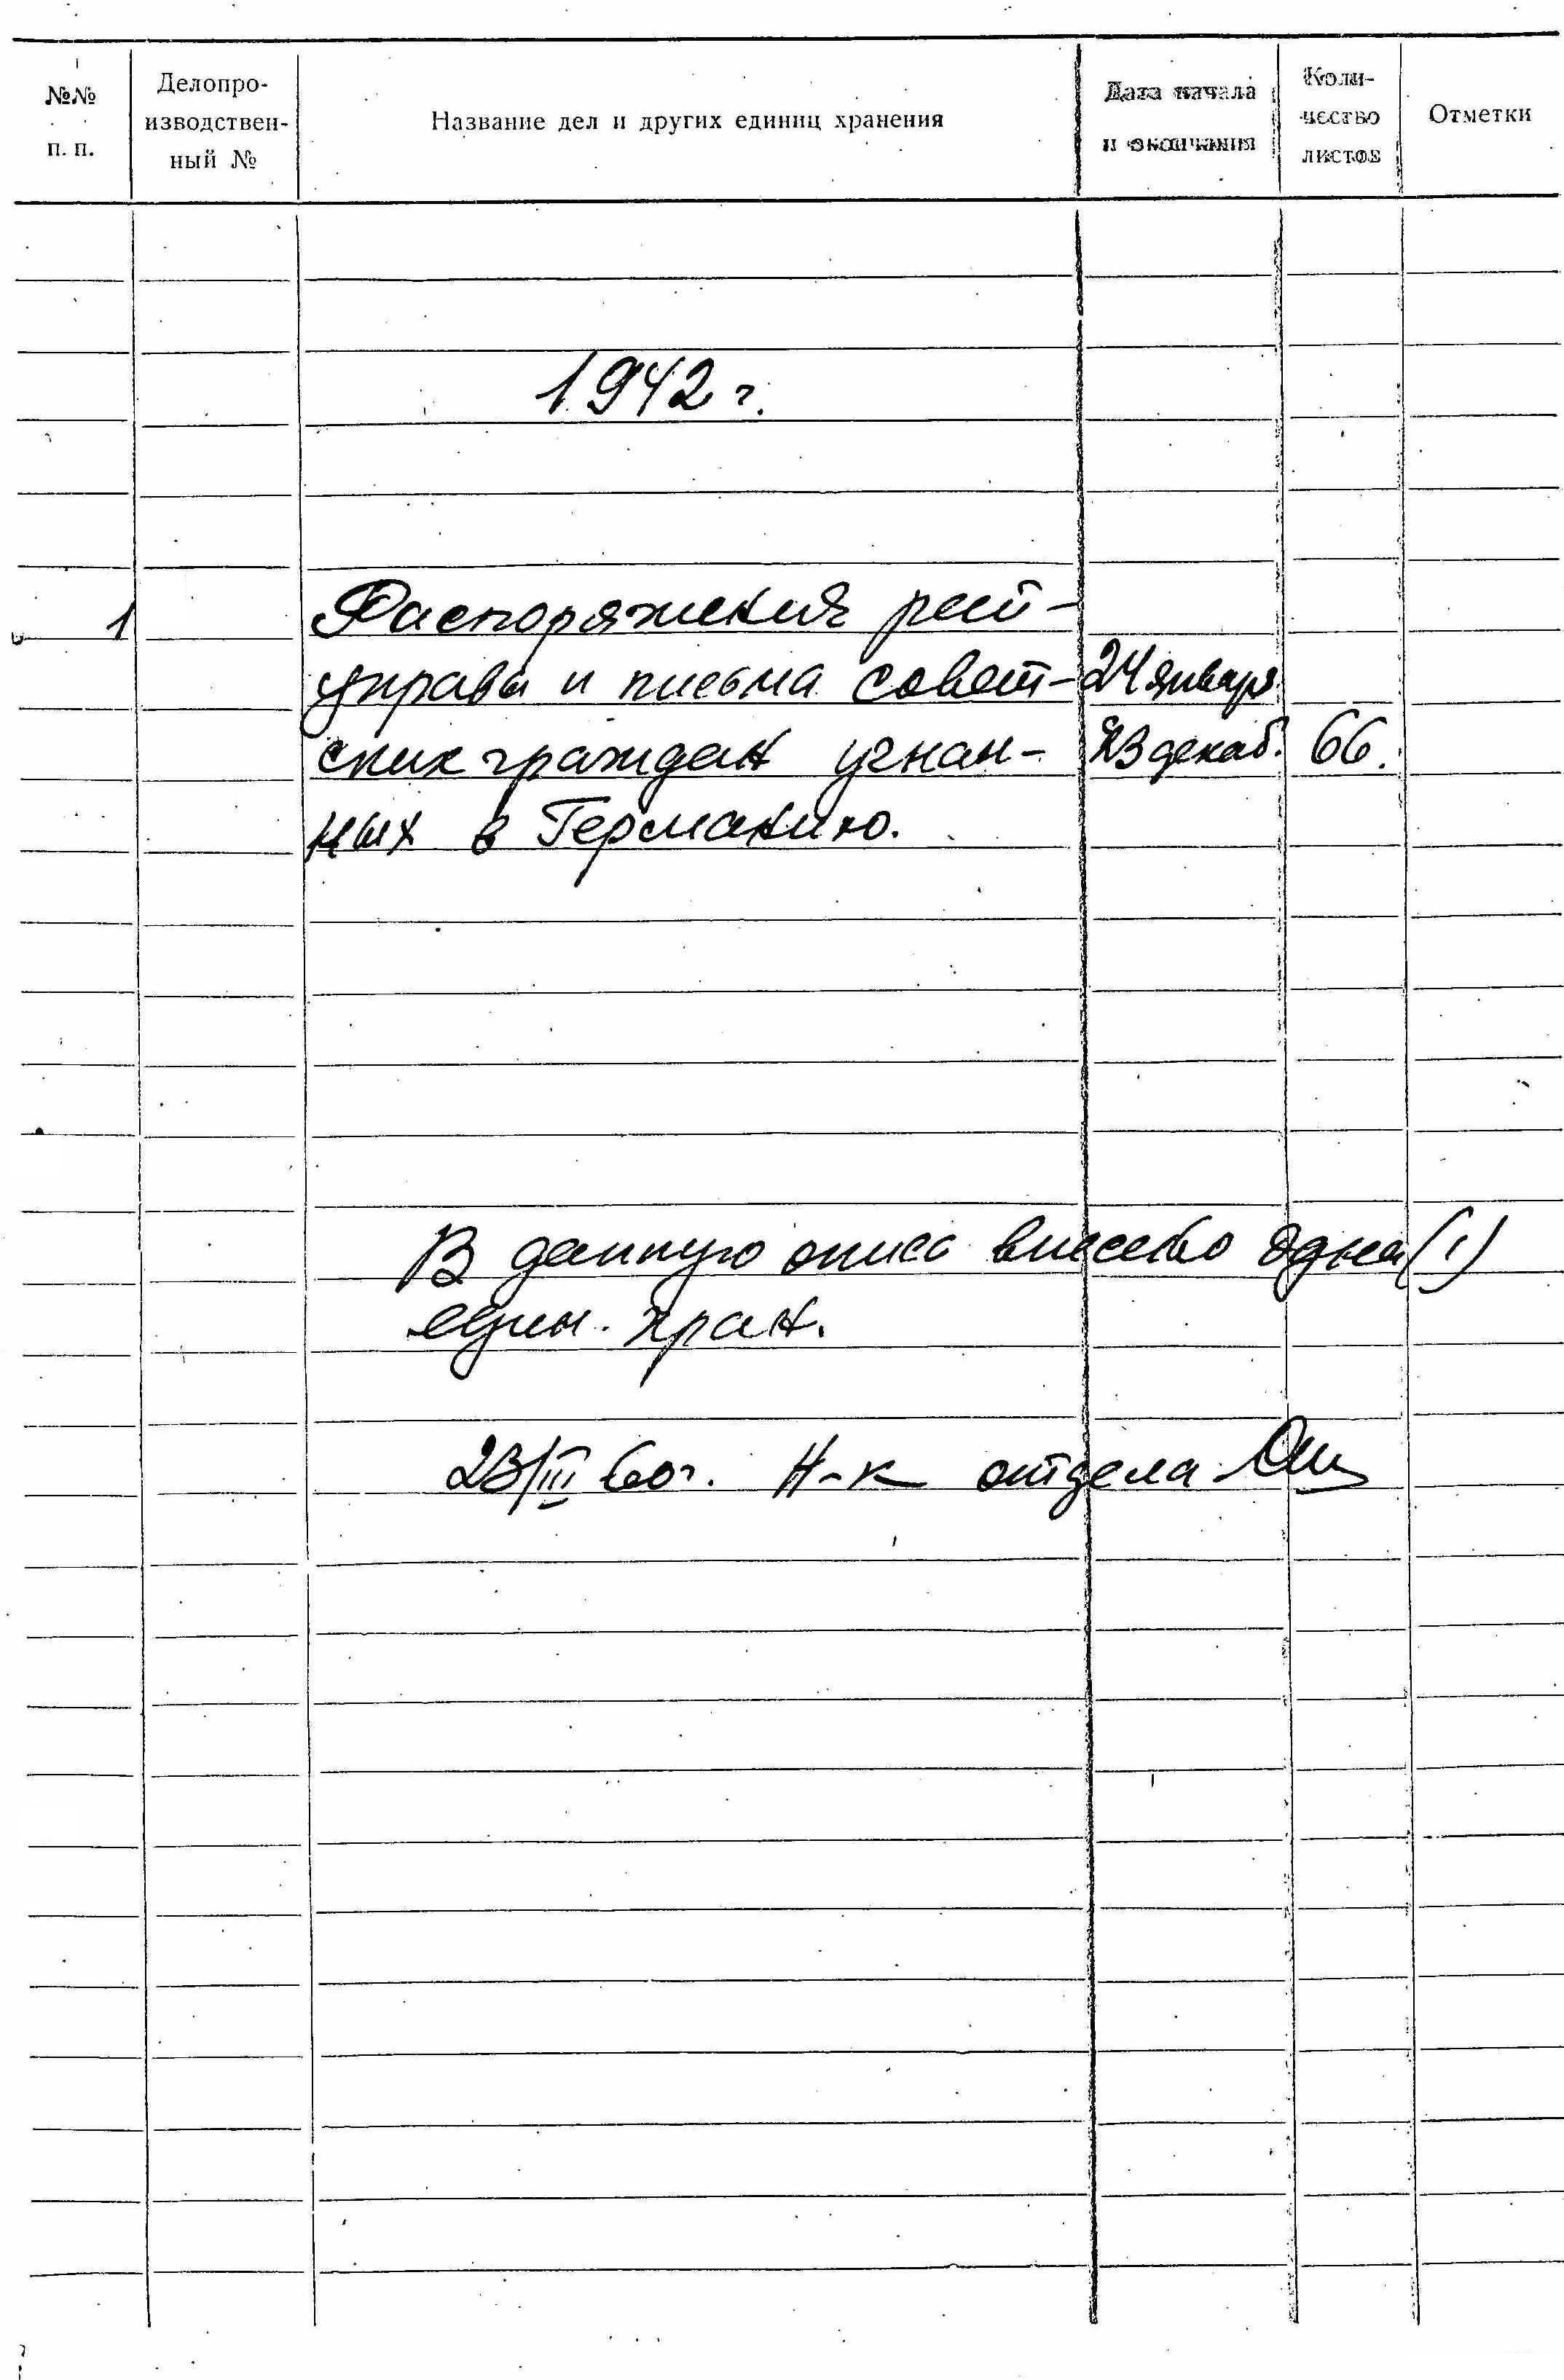 №№ п. п.
Делопро-
изводствен-
ный №
Название дел и других единиц хранения
Дата начала
и окончания
Коли-
чество
листов
Отметки
1942 г.
1 Распоряжения рай-
управы и письма совет- 24 января
ских граждан угнан- 23 декаб. 66.
ных в Германию.
В данную опись внесено одна (1)
един. хран.
23/III 60г. Н-к отдела